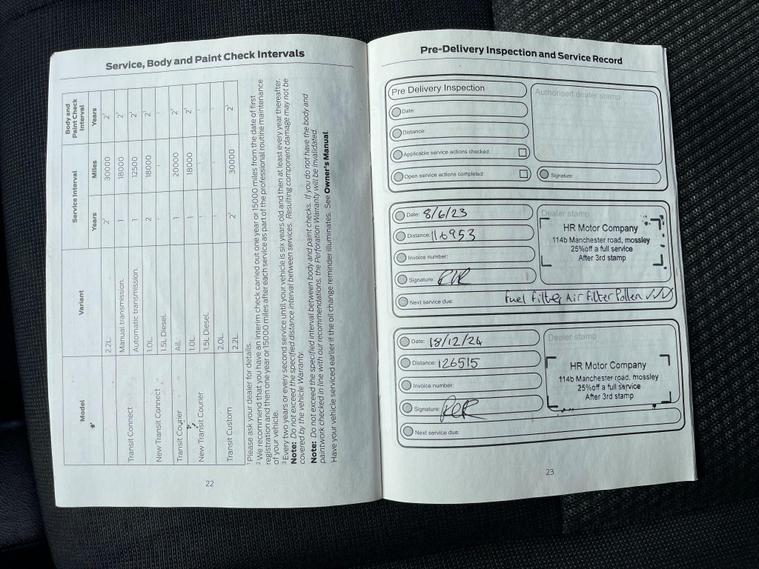 Service, Body and Paint Check Intervals
Model Variant Service Interval Body and Paint Check Interval
Years Miles Years
2.2L 2² 30000 2¹
Transit Connect Manual transmission. 1 18000 2¹
Automatic transmission. 1 12500 2¹
New Transit Connect 1.0L 2 18000 2¹
1.5L Diesel. - - -
Transit Courier All. 1 20000 2¹
New Transit Courier 1.0L 1 18000 2¹
1.5L Diesel. - - -
Transit Custom 2.0L - - -
2.2L 2² 30000 2¹
¹ Please ask your dealer for details.
² We recommend that you have an interim check carried out one year or 15000 miles from the date of first
registration and then one year or 15000 miles after each service as part of the professional routine maintenance
of your vehicle.
³ Every two years or every second service until your vehicle is six years old and then at least every year thereafter.
Note: Do not exceed the specified distance interval between services. Resulting component damage may not be
covered by the vehicle Warranty.
Note: Do not exceed the specified interval between body and paint checks. If you do not have the body and
paintwork checked in line with our recommendations, the Perforation Warranty will be invalidated.
Have your vehicle serviced earlier if the oil change reminder illuminates. See Owner's Manual.
22
Pre-Delivery Inspection and Service Record
Pre Delivery Inspection
Authorised dealer stamp
Date:
Distance:
Applicable service actions checked:
Open service actions completed:
Signature:
Date: 8/6/23
Distance: 116953
Invoice number:
Signature:
Next service due: fuel filter, Air filter Pollen
Dealer stamp
HR Motor Company
114b Manchester road, mossley
25%off a full service
After 3rd stamp
Date: 18/12/24
Distance: 126515
Invoice number:
Signature:
Next service due:
Dealer stamp
HR Motor Company
114b Manchester road, mossley
25%off a full service
After 3rd stamp
23